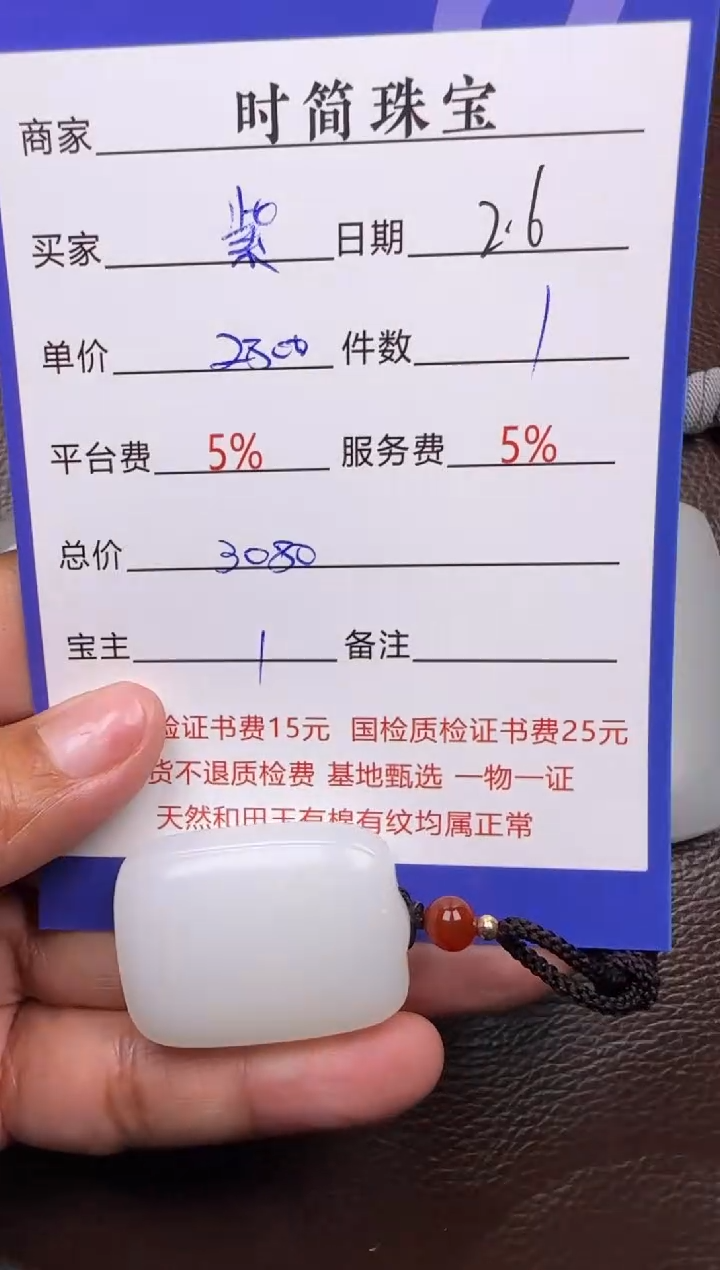 商家 时简珠宝
买家 紫 日期 2.6
单价 2800 件数 1
平台费 5% 服务费 5%
总价 3080
宝主 1 备注
验证书费15元 国检质检证书费25元
货不退质检费 基地甄选 一物一证
天然和田玉有棉有纹均属正常